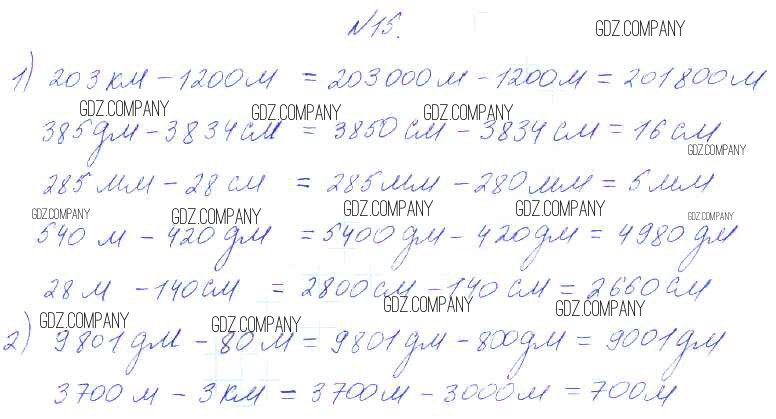 N15.
GDZ.COMPANY
1) 203 км - 1200 м = 203000 м - 1200 м = 201800 м
GDZ.COMPANY GDZ.COMPANY GDZ.COMPANY
385 дм - 3834 см = 3850 см - 3834 см = 16 см
GDZ.COMPANY
285 мм - 28 см = 285 мм - 280 мм = 5 мм
GDZ.COMPANY GDZ.COMPANY GDZ.COMPANY GDZ.COMPANY GDZ.COMPANY
540 м - 420 дм = 5400 дм - 420 дм = 4980 дм
28 м - 140 см = 2800 см - 140 см = 2660 см
GDZ.COMPANY GDZ.COMPANY GDZ.COMPANY GDZ.COMPANY
2) 9801 дм - 80 м = 9801 дм - 800 дм = 9001 дм
3700 м - 3 км = 3700 м - 3000 м = 700 м